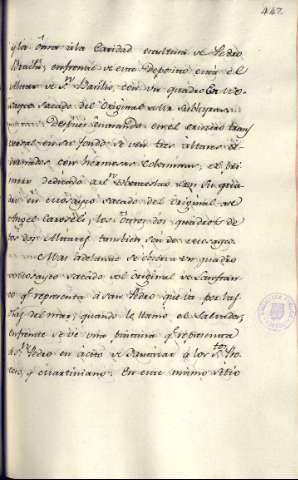 442
y la otra á la Caridad escultura de Pedro
Bracci, enfrente de este deposito está el
Altar de Sn Basilio, con un quadro en mo-
sayco sacado del Original de la Subleyras
Despues entrando en el crucero trans
versal en su fondo se ven tres altares a-
dornados con hermosas Colomnas, el pri-
mer dedicado a Sn Wenceslao y su qua-
dro en mosayco sacado del Original de
Angel Caroseli, los otros dos quadros de
los dos Altares tambien son de mosayco
Mas adelante se observa un quadro
en mosayco sacado del original de Lanfran-
co q.e representa á San Pedro que va por las
olas del mar, quando le llamó el Salvador,
enfrente se ve una pintura q.e representa
a Sn Pedro en acto de bautizar á los Stos Pro-
ceso, y Martiniano. En este mismo sitio